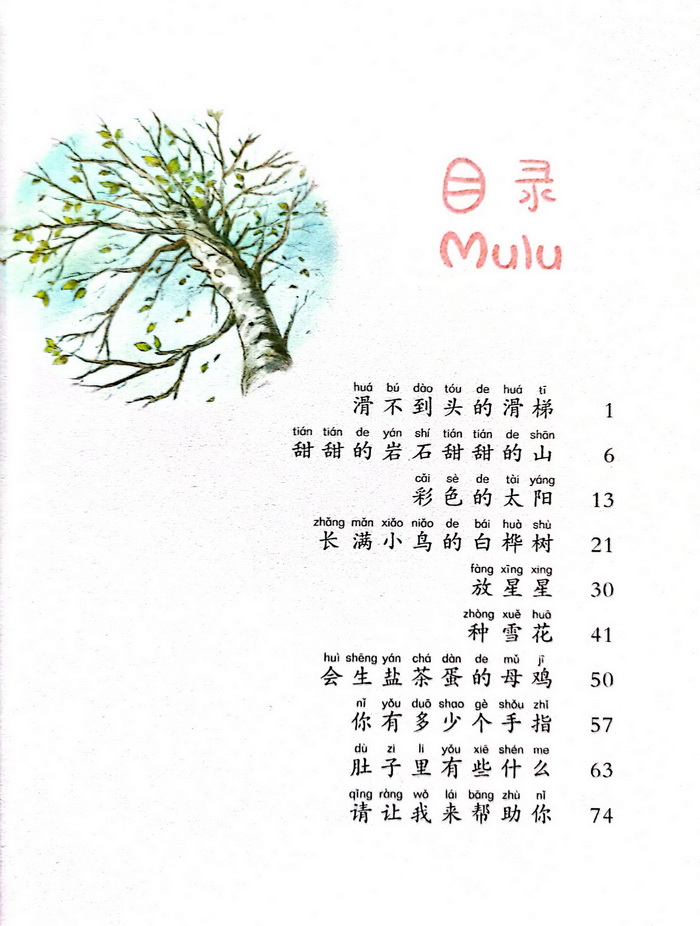 目录
Mulu
huá bú dào tóu de huá tī
滑不到头的滑梯 1
tián tián de yán shí tián tián de shān
甜甜的岩石甜甜的山 6
cǎi sè de tài yáng
彩色的太阳 13
zhǎng mǎn xiǎo niǎo de bái huà shù
长满小鸟的白桦树 21
fàng xīng xing
放星星 30
zhòng xuě huā
种雪花 41
huì shēng yán chá dàn de mǔ jī
会生盐茶蛋的母鸡 50
nǐ yǒu duō shao gè shǒu zhǐ
你有多少个手指 57
dù zi li yǒu xiē shén me
肚子里有些什么 63
qǐng ràng wǒ lái bāng zhù nǐ
请让我来帮助你 74